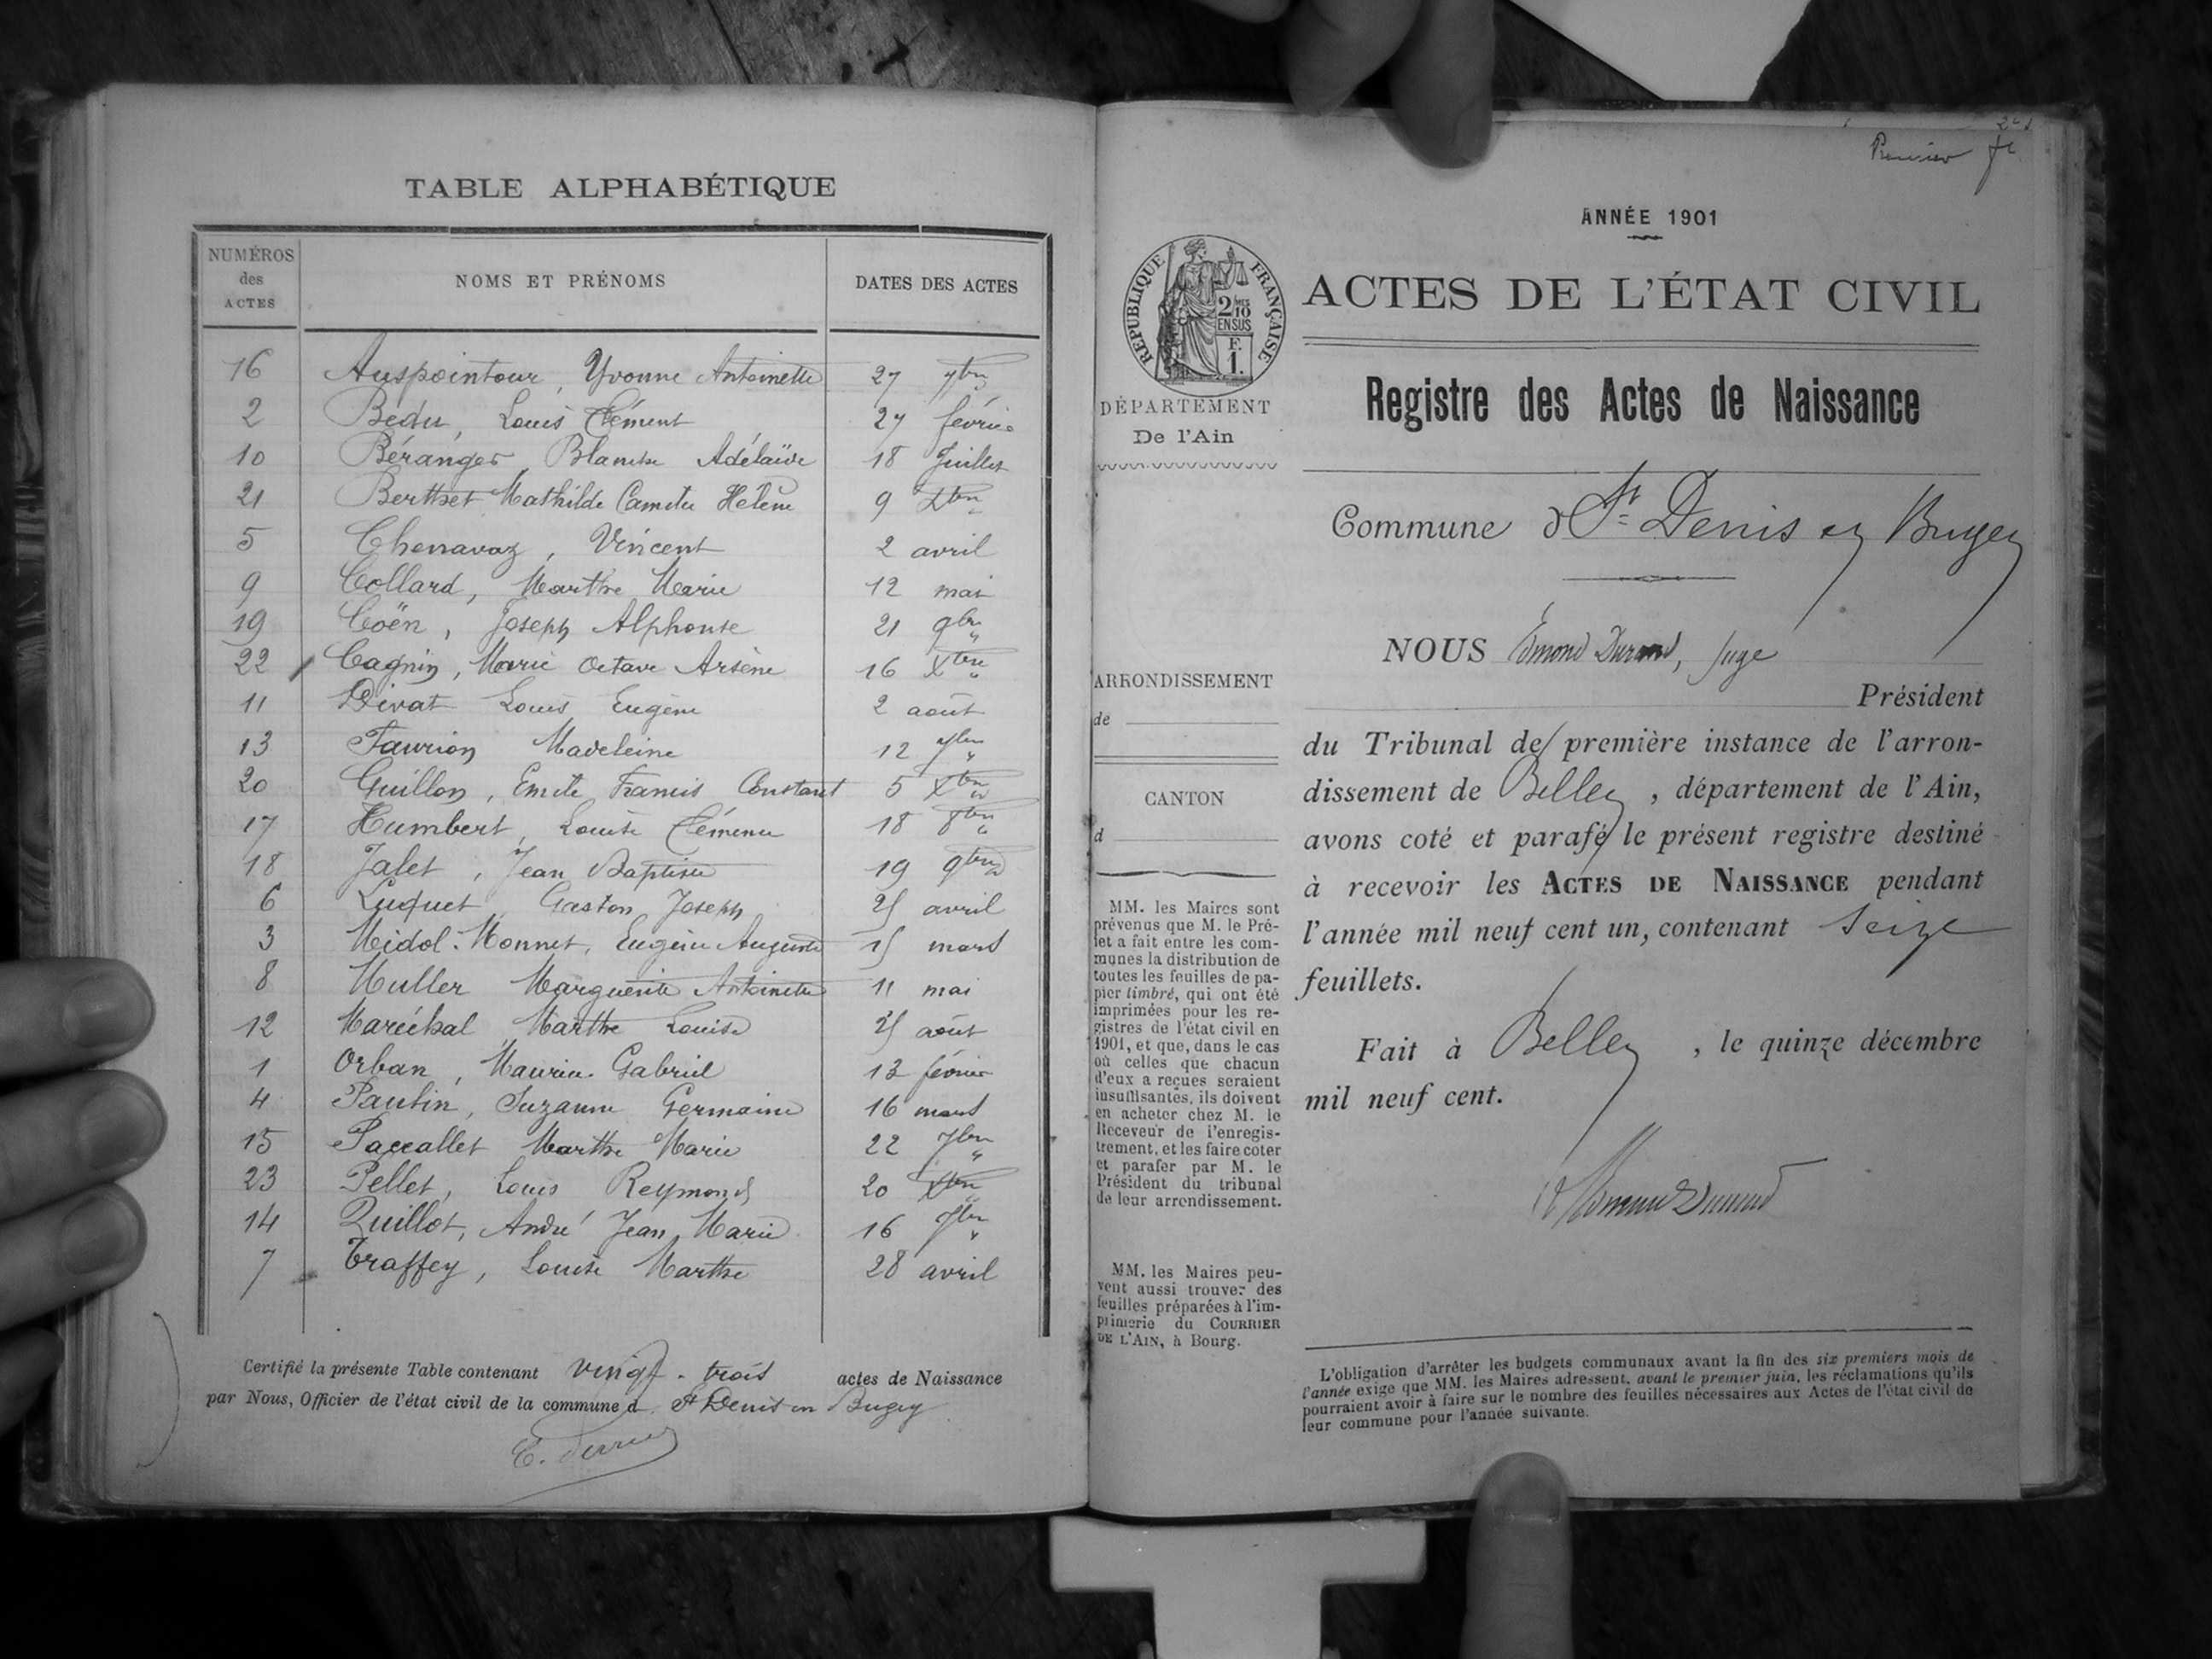 TABLE ALPHABÉTIQUE
NUMÉROS des ACTES NOMS ET PRÉNOMS DATES DES ACTES
16 Auspointour, Yvonne Antoinette 27 7bre
2 Bedu, Louis Clément 27 février
10 Béranger Blanche Adélaïde 18 Juillet
21 Berthet Mathilde Camille Hélène 9 Xbre
5 Chenavaz, Vincent 2 avril
9 Collard, Marthe Marie 12 mai
19 Coën, Joseph Alphonse 21 9bre
22 Cagnin, Marie Octave Arsène 16 Xbre
11 Divat Louis Eugène 2 août
13 Faurion Madeleine 12 7bre
20 Guillon, Emile Francis Constant 5 Xbre
17 Humbert, Louise Clémence 18 8bre
18 Jalet, Jean Baptiste 19 9bre
6 Luquet Gaston Joseph 25 avril
3 Midol-Monnet, Eugène Auguste 15 mars
8 Muller Marguerite Antoinette 11 mai
12 Maréchal Marthe Louise 25 août
1 Orban, Maurice Gabriel 13 février
4 Paulin, Suzanne Germaine 16 mars
15 Paccallet Marthe Marie 22 7bre
23 Pellet, Louis Reymond 20 Xbre
14 Quillot, André Jean Marie 16 7bre
7 Traffey, Louise Marthe 28 avril
Certifié la présente Table contenant vingt-trois actes de Naissance
par Nous, Officier de l'état civil de la commune d St Denis en Bugey
Premier
ANNÉE 1901
RÉPUBLIQUE FRANÇAISE
2/10 EN SUS
F. 1.
ACTES DE L'ÉTAT CIVIL
DÉPARTEMENT
De l'Ain
Registre des Actes de Naissance
Commune d St Denis en Bugey
NOUS Edmond Durand, Juge
Président
du Tribunal de première instance de l'arron-
dissement de Belley, département de l'Ain,
avons coté et parafé le présent registre destiné
à recevoir les ACTES DE NAISSANCE pendant
l'année mil neuf cent un, contenant seize
feuillets.
Fait à Belley, le quinze décembre
mil neuf cent.
Edmond Durand
ARRONDISSEMENT
de
CANTON
d
MM. les Maires sont
prévenus que M. le Pré-
fet a fait entre les com-
munes la distribution de
toutes les feuilles de pa-
pier timbré, qui ont été
imprimées pour les re-
gistres de l'état civil en
1901, et que, dans le cas
où celles que chacun
d'eux a reçues seraient
insuffisantes, ils doivent
en acheter chez M. le
Receveur de l'enregis-
trement, et les faire coter
et parafer par M. le
Président du tribunal
de leur arrondissement.
MM. les Maires peu-
vent aussi trouver des
feuilles préparées à l'im-
primerie du COURRIER
DE L'AIN, à Bourg.
L'obligation d'arrêter les budgets communaux avant la fin des six premiers mois de
l'année exige que MM. les Maires adressent, avant le premier juin, les réclamations qu'ils
pourraient avoir à faire sur le nombre des feuilles nécessaires aux Actes de l'état civil de
leur commune pour l'année suivante.